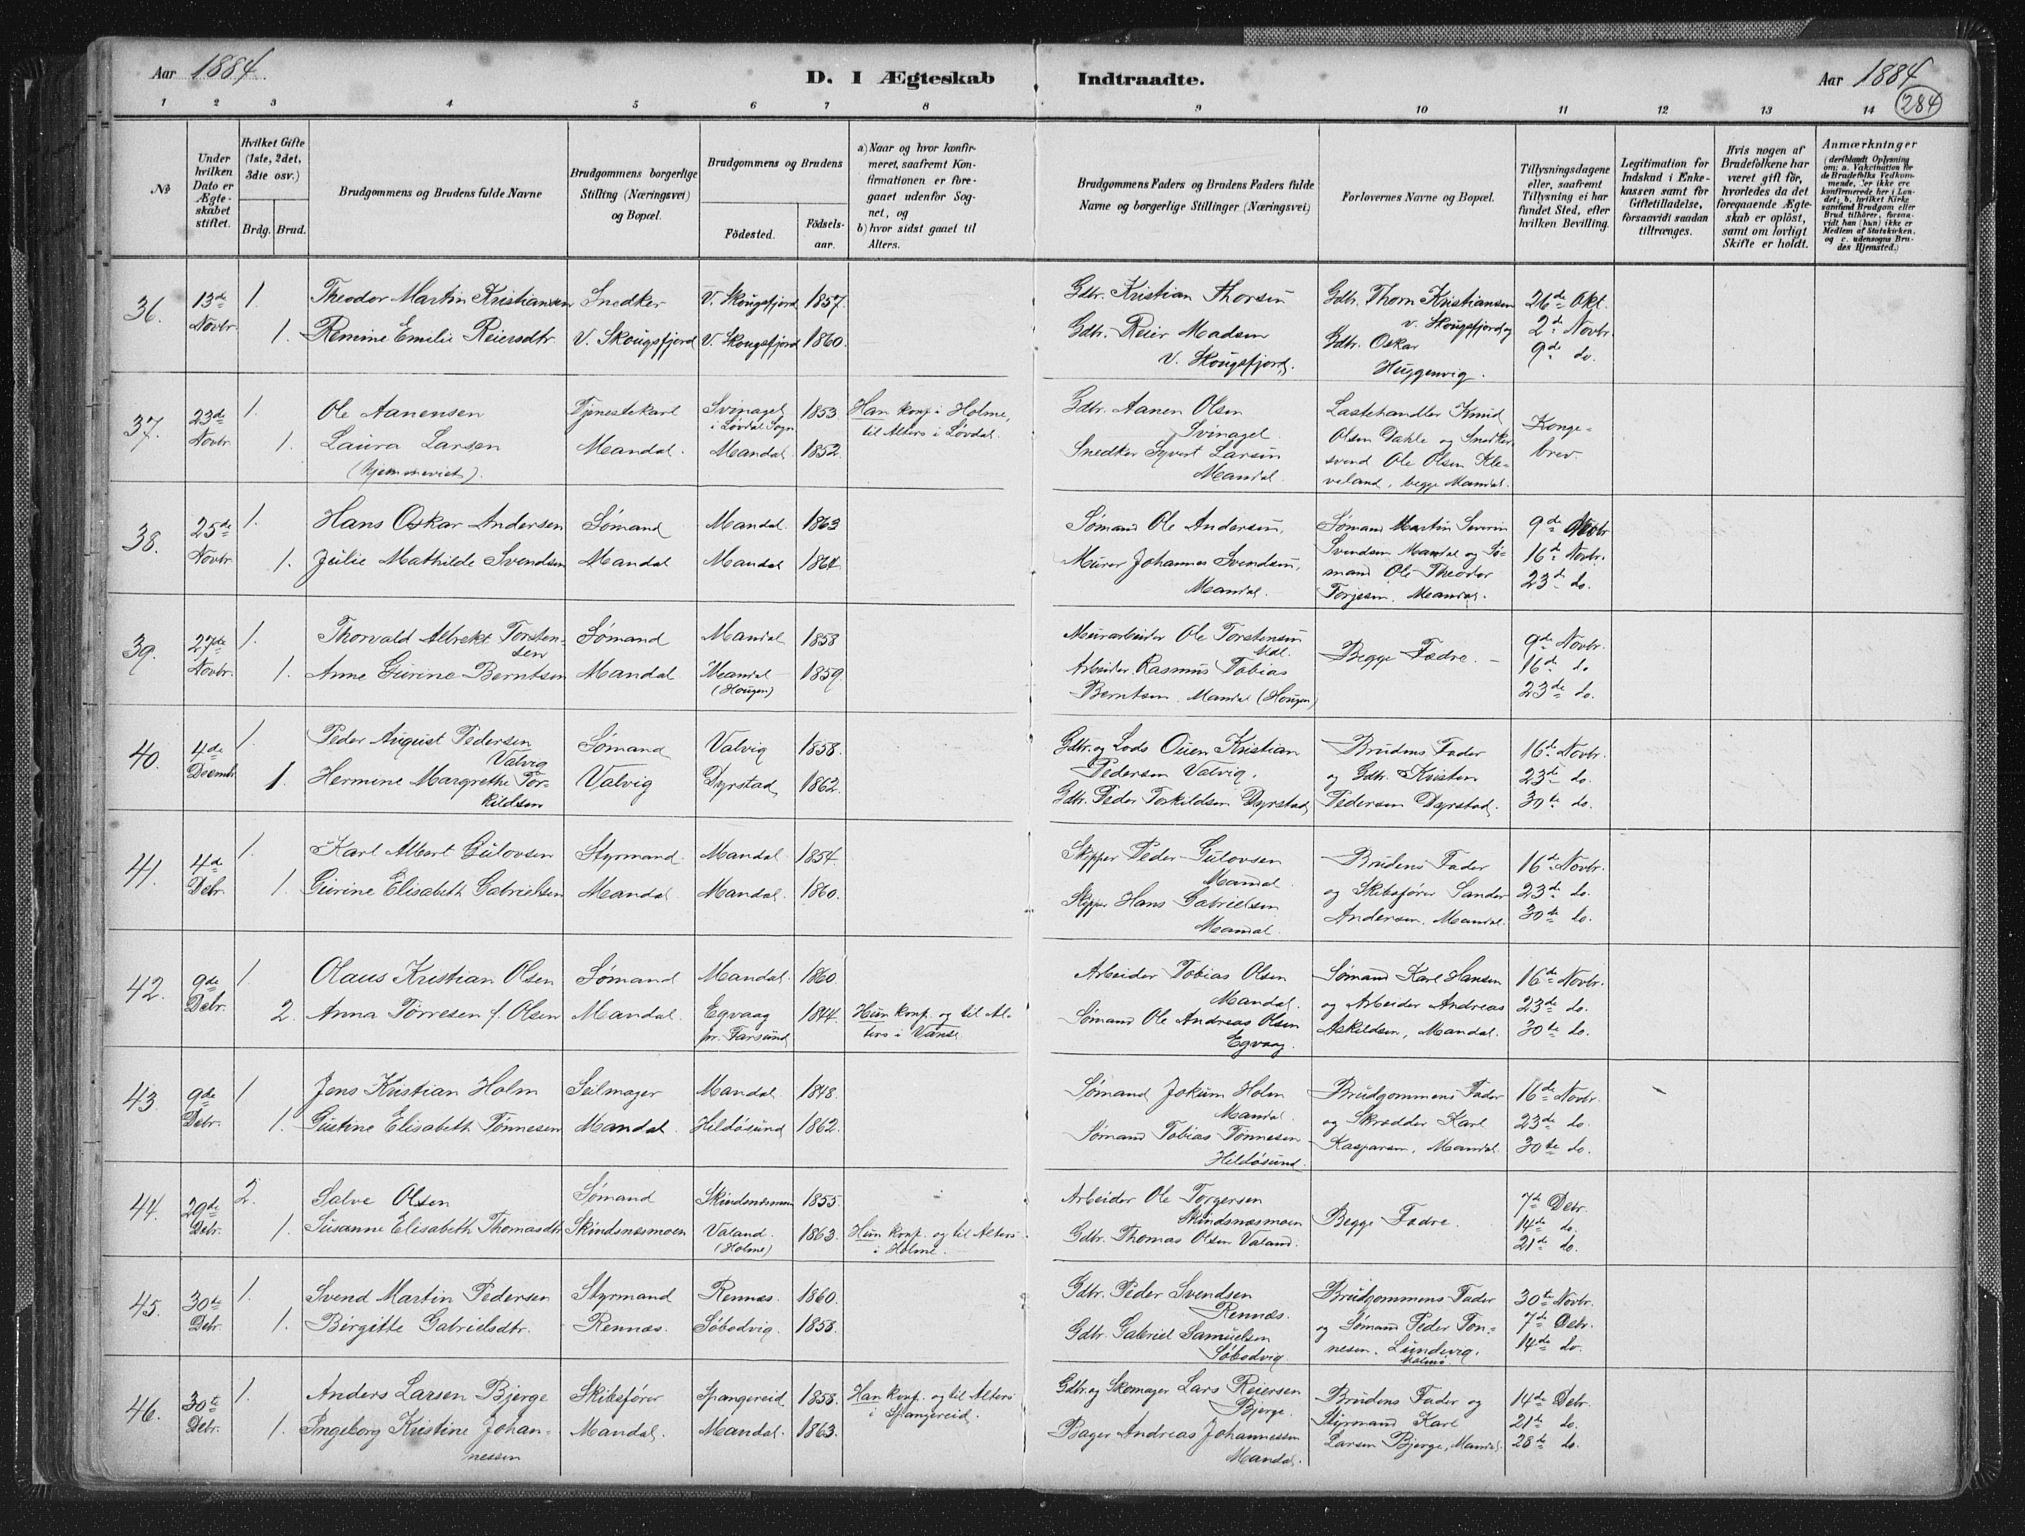 Aar 1884.
D. I Ægteskab Indtraadte.
Aar 1884
284
1 2 3 4 5 6 7 8 9 10 11 12 13 14
No
Under hvilken Dato er Ægteskabet stiftet.
Hvilket Gifte (1ste, 2det, 3die osv.)
Brdg. Brud.
Brudgommens og Brudens fulde Navne
Brudgommens borgerlige Stilling (Næringsvei) og Bopæl.
Brudgommens og Brudens
Fødested.
Fødselsaar.
a) Naar og hvor konfirmeret, saafremt Konfirmationen er foregaaet udenfor Sognet, og
b) hvor sidst gaaet til Alters.
Brudgommens Faders og Brudens Faders fulde Navne og borgerlige Stillinger (Næringsvei)
Forlovernes Navne og Bopæl.
Tillysningsdagene eller, saafremt Tillysning ei har fundet Sted, efter hvilken Bevilling.
Legitimation for Indskud i Enkekassen samt for Giftetilladelse, forsaavidt saadan tiltrænges.
Hvis nogen af Brudefolkene har været gift før, hvorledes da det foregaaende Ægteskab er opløst, samt om lovligt Skifte er holdt.
Anmærkninger
36. 13de Novbr 1. Theodor Martin Kristiansen Snedker V. Skougsfjord 1857. Gdbr. Kristian Thorsen Gdbr. Thorn Kristiansen 26de Okt.
v. Skougsfjord og 2de Novbr
1. Remine Emilie Reiersdtr. V. Skougsfjord V. Skougsfjord 1860. Gdbr. Reier Madsen Gdbr. Oskar 9de do.
V. Skougsfjord. Huggenvig.
37. 23de Novbr 1. Ole Aanensen Tjenestekarl Svinagel i Løvdal Sogn 1853 Han konf. i Holme, til Alters i Løvdal. Gdbr. Aanen Olsen Lastehandler Knud
Svinagel. Olsen Dahle og Snedker Kongebrev.
1. Laura Larsen Mandal. Mandal. 1852. Snedker Syvert Larsen svend Ole Olsen Kle-
(hjemmeviet). Mandal. veland, begge Mandal.
38. 25de Novbr 1. Hans Oskar Andersen Sømand Mandal 1863 Sømand Ole Andersen, Sømand Martin Severin 9de Novbr
Svendsen Mandal og Sø- 16de Novbr.
1. Julie Mathilde Svendsen Mandal Mandal 1864 Murer Johannes Svendsen, mand Ole Theodor 23de do.
Mandal. Torjesen, Mandal.
39. 27de Novbr. 1. Thorvald Albrekt Torsten- Sømand Mandal 1858 Murarbeider Ole Torstensen 9de Novbr.
sen Begge Fædre. 16de do
1. Anne Gurine Berntsen Mandal Mandal (Hougen) 1859. Arbeider Rasmus Tobias 23de do.
Berntsen, Mandal (Hougen)
40. 4de Decmbr 1. Peder August Pedersen Sømand Valvig 1858. Gdbr. og Lods Ouen Kristian Brudens Fader 16de Novbr.
Valvig Pedersen Valvig. og Gdbr. Kristen 23de do.
1. Hermine Margrethe Tor- Valvig Dyrstad 1862. Gdbr. Peder Torkildsen Dyrstad Pedersen Dyrstad. 30te do.
kildsen
41. 4de Debr. 1. Karl Albert Gulovsen Styrmand. Mandal. 1854. Skipper Peder Gulovsen Brudens Fader 16de Novbr.
Mandal. og Skibsfører Sander 23de do.
1. Gurine Elisabeth Gabrielsen Mandal. Mandal. 1860. Skipper Hans Gabrielsen Andersen, Mandal. 30te do.
Mandal.
42. 9de Debr. 1 Olaus Kristian Olsen Sømand Mandal. 1860. Arbeider Tobias Olsen Sømand Karl Hansen 16de Novbr.
Mandal. og Arbeider Andreas 23de do.
2. Anna Tørresen f. Olsen Mandal. Egvaag pr. Farsund 1844. Hun konf. og til Alters i Vanse Sømand Ole Andreas Olsen Askildsen, Mandal. 30te do.
Egvaag.
43. 9de Debr. 1 Jens Kristian Holm Seilmager Mandal 1848. Sømand Jokum Holm Brudgommens Fader 16de Novbr.
Mandal. og Skrædder Karl 23de do.
1. Gustine Elisabeth Tønnesen Mandal. Hildøsund 1862. Sømand Tobias Tønnesen Kaspersen, Mandal. 30te do.
Hildøsund.
44. 29de Debr. 2. Salve Olsen Sømand Skindsnæsmoen 1855. Arbeider Ole Torgersen 7de Debr.
Skindsnæsmoen Begge Fædre. 14de do.
1. Susanne Elisabeth Thomasdtr Skindsnæsmoen Valand. (Holme) 1863. Hun konf. og til Alters i Holme. Gdbr. Thomas Olsen Valand. 21de do.
45. 30te Debr. 1. Svend Martin Pedersen Styrmand Rennæs. 1860. Gdbr. Peder Svendsen Brudgommens Fader 30te Novbr.
Rennæs. og Sømand Peder Tøn- 7de Debr.
1. Birgitte Gabrielsdtr. Rennæs. Søbodvig. 1858. Gdbr. Gabriel Samuelsen nesen, Lundevig, 14de do.
Søbodvig.
46. 30te Debr. 1. Anders Larsen Bjerge Skibsfører Spangereid. 1858. Han konf. og til Alters i Spangereid. Gdbr. og Skomager Lars Reiersen Brudens Fader og 14de Debr.
Bjerge. Styrmand Karl 21de do.
1. Ingeborg Kristine Johan- Mandal. Mandal. 1863. Bager Andreas Johannessen Larsen Bjerge, Mandal. 28de do.
nessen Mandal.